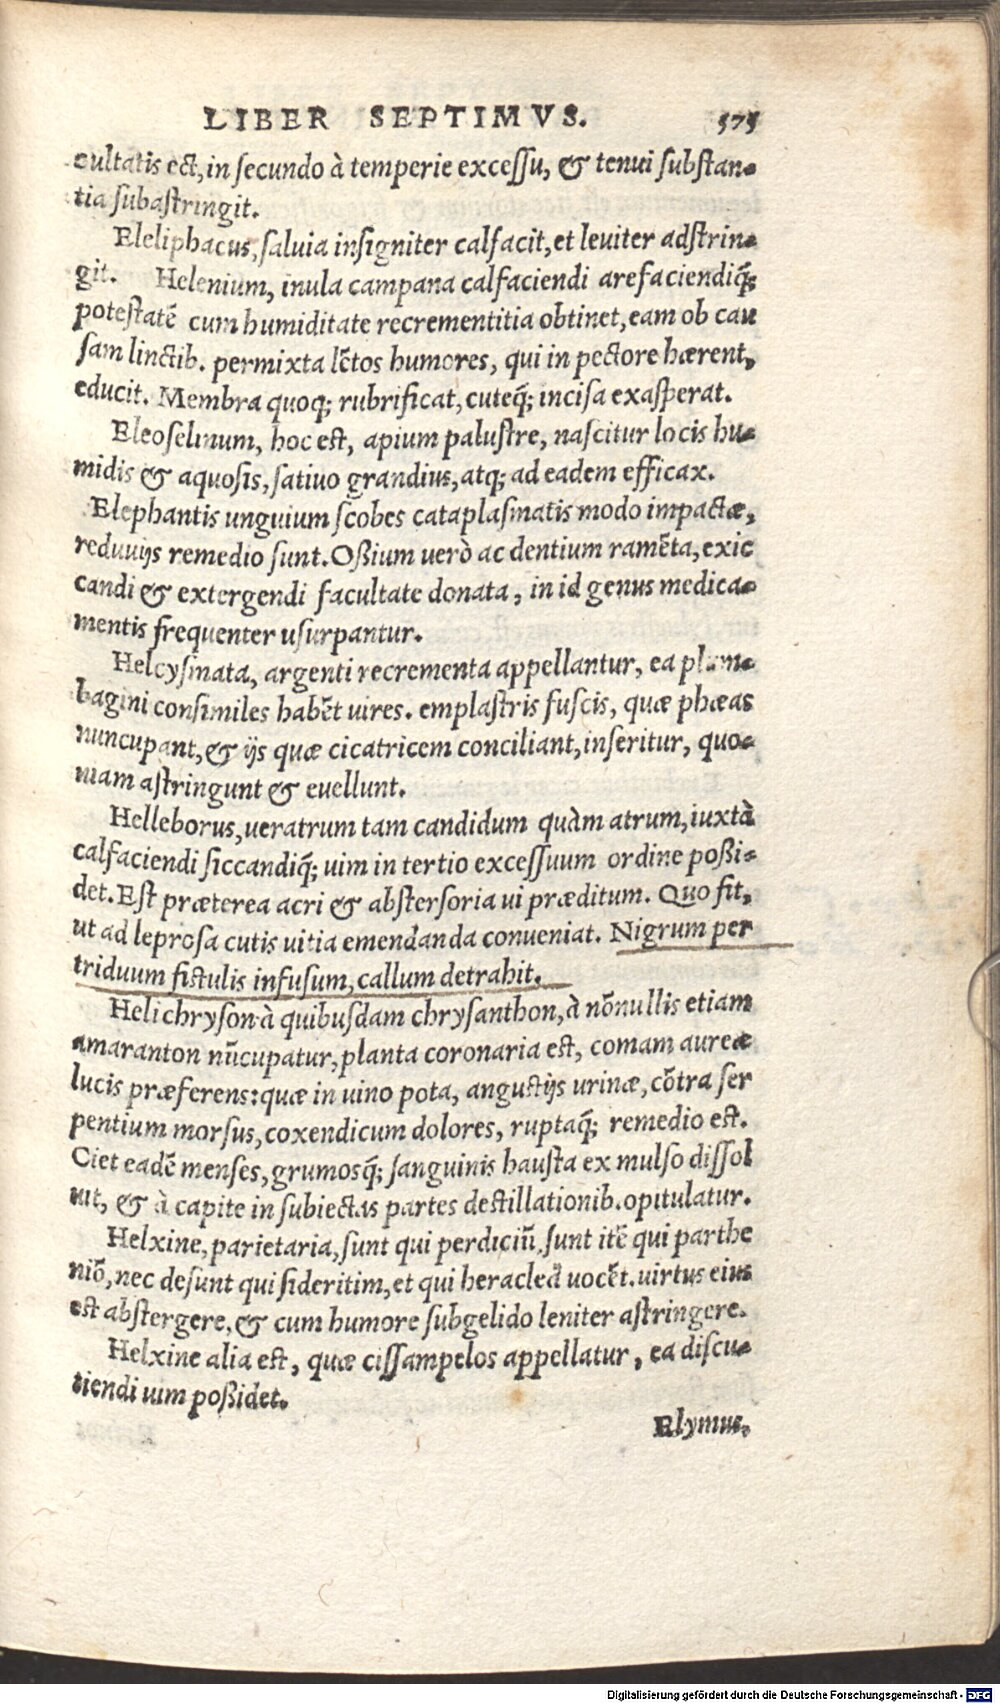 LIBER SEPTIMVS. 575
cultatis est, in secundo à temperie excessu, & tenui substan-
tia subastringit.
Eleliphacus, saluia insigniter calfacit, et leuiter adstrin-
git. Helenium, inula campana calfaciendi arefaciendiq́;
potestatē cum humiditate recrementitia obtinet, eam ob cau
sam linctib. permixta lētos humores, qui in pectore hærent,
educit. Membra quoq; rubrificat, cuteq́; incisa exasperat.
Eleoselinum, hoc est, apium palustre, nascitur locis hu-
midis & aquosis, satiuo grandius, atq; ad eadem efficax.
Elephantis unguium scobes cataplasmatis modo impactæ,
reduuijs remedio sunt. Oßium verò ac dentium ramēta, exic
candi & extergendi facultate donata, in id genus medica-
mentis frequenter usurpantur.
Helcysmata, argenti recrementa appellantur, ea plum-
bagini consimiles habēt uires. emplastris fuscis, quæ phæas
nuncupant, & ijs quæ cicatricem conciliant, inseritur, quo-
niam astringunt & euellunt.
Helleborus, ueratrum tam candidum quàm atrum, iuxtà
calfaciendi siccandiq́; uim in tertio excessuum ordine poßi-
det. Est præterea acri & abstersoria ui præditum. Quo fit,
ut ad leprosa cutis uitia emendanda conueniat. Nigrum per
triduum fistulis infusum, callum detrahit.
Helichryson à quibusdam chrysanthon, à nōnullis etiam
amaranton nūcupatur, planta coronaria est, comam aureæ
lucis præferens: quæ in uino pota, angustijs urinæ, cōtra ser
pentium morsus, coxendicum dolores, ruptaq́; remedio est.
Ciet eadē menses, grumosq́; sanguinis hausta ex mulso dissol
uit, & à capite in subiectas partes destillationib. opitulatur.
Helxine, parietaria, sunt qui perdiciū, sunt itē qui parthe
niō, nec desunt qui sideritim, et qui heracleā uocēt. uirtus eius
est abstergere, & cum humore subgelido leniter astringere.
Helxine alia est, quæ cissampelos appellatur, ea discu-
tiendi uim poßidet.
Elymus.
Digitalisierung gefördert durch die Deutsche Forschungsgemeinschaft - DFG